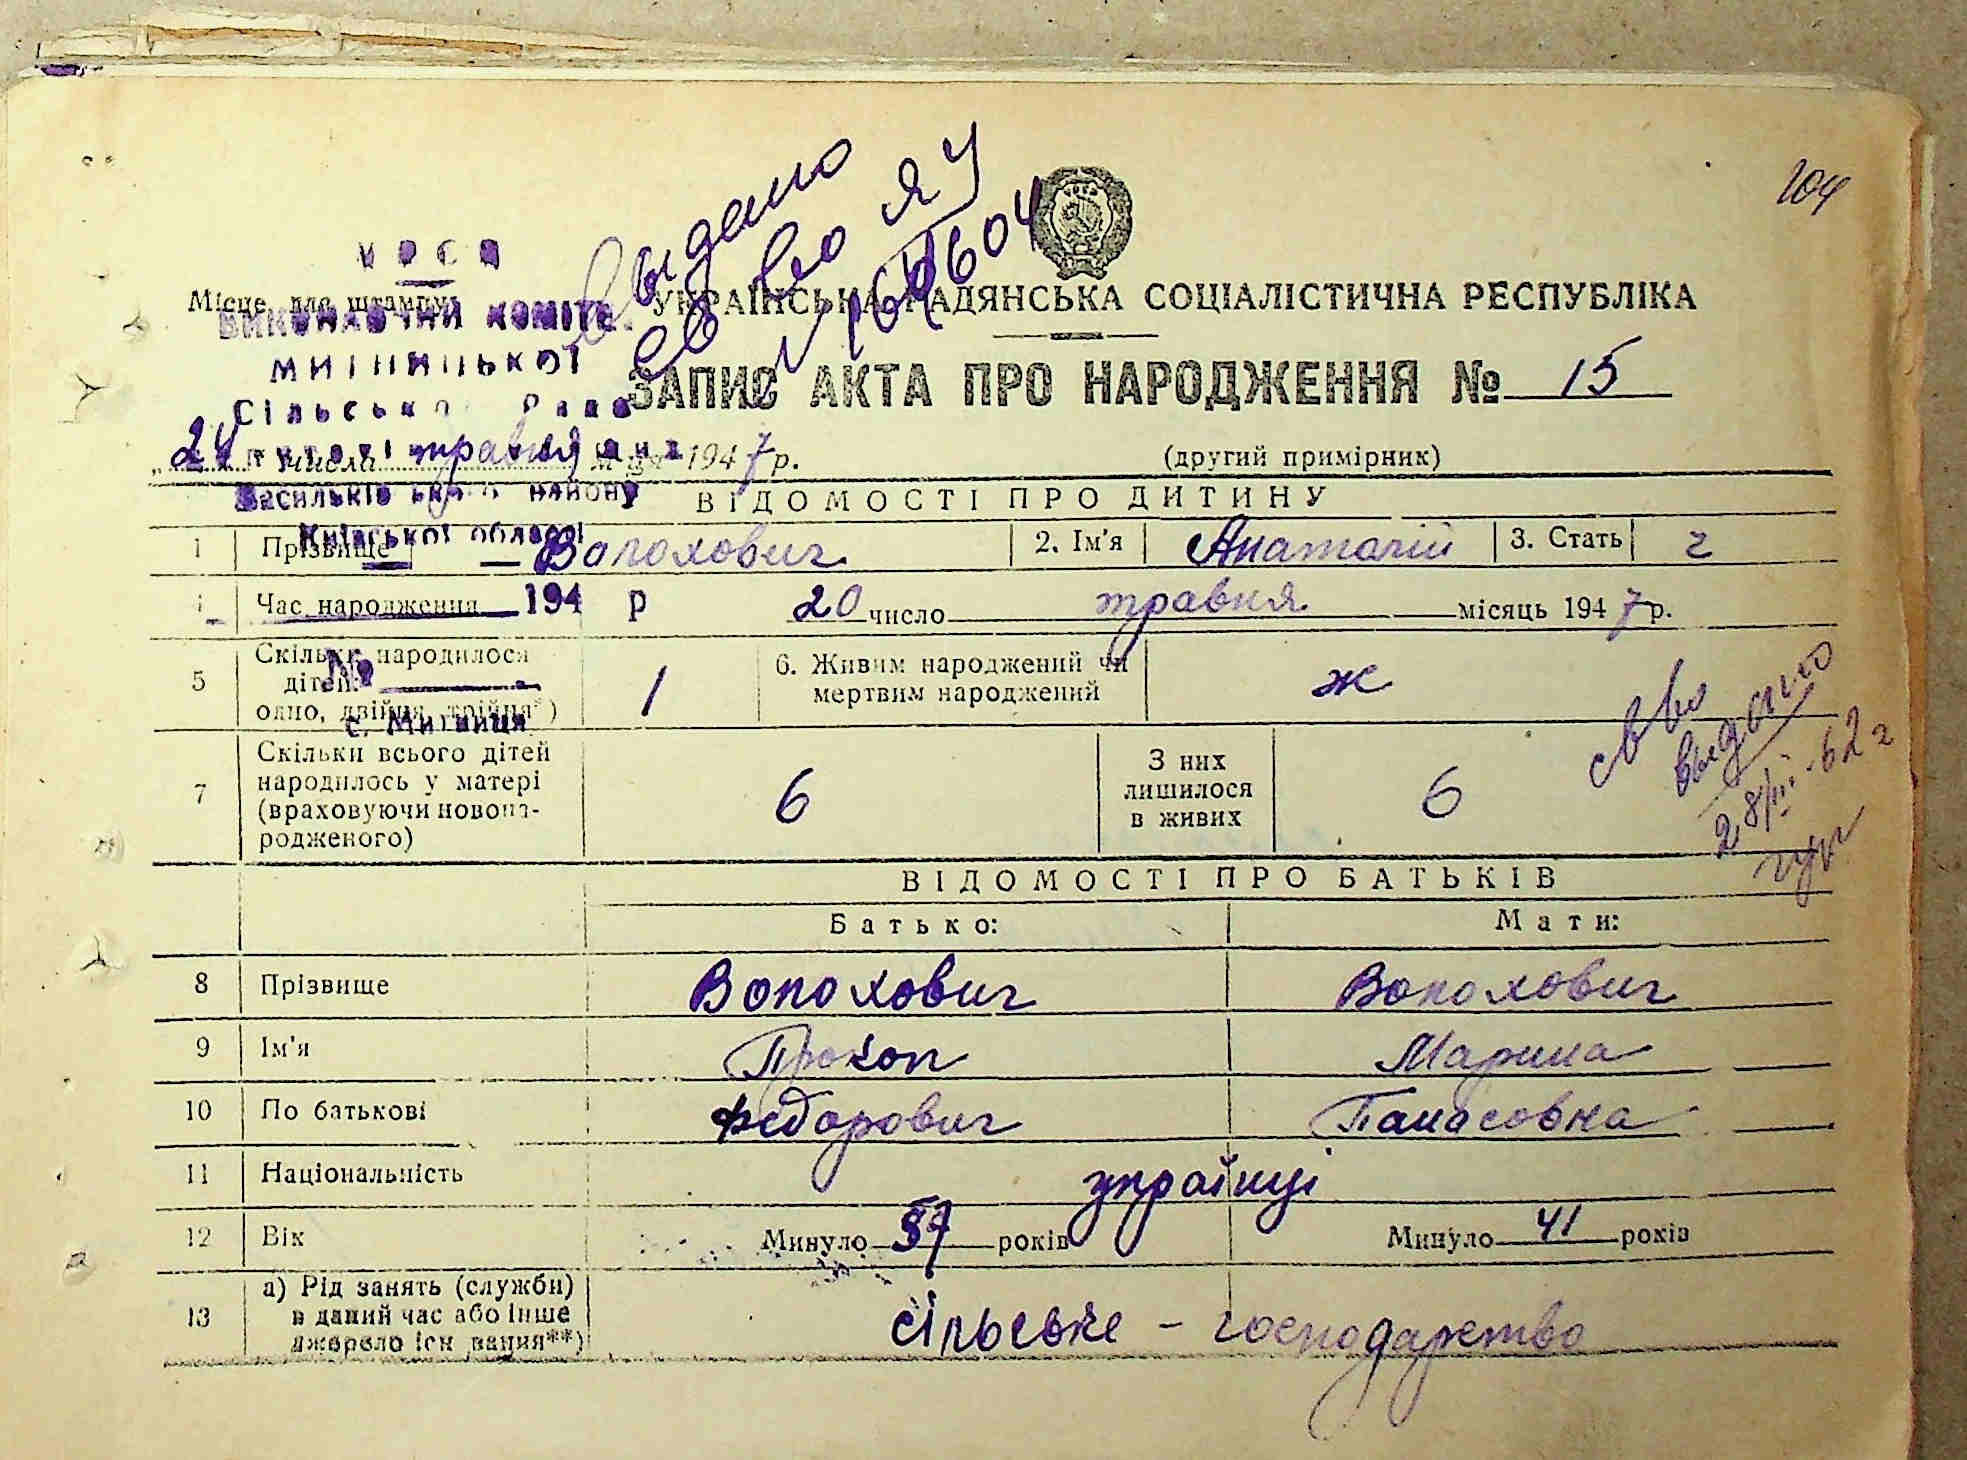 204
У Р С Р
выдано
св во ЯУ
№ 1601604
Місце для штампу
УКРАЇНСЬКА РАДЯНСЬКА СОЦІАЛІСТИЧНА РЕСПУБЛІКА
ВИКОНАВЧИЙ КОМІТЕ
МИТНИЦЬКОЇ
ЗАПИС АКТА ПРО НАРОДЖЕННЯ № 15
Сільської Ради
„24" числа травня м-ця 1947 р.
(другий примірник)
Васильківського району
ВІДОМОСТІ ПРО ДИТИНУ
Київської області
1 Прізвище Волохович 2. Ім'я Анатолій 3. Стать ч
4 Час народження 20 число травня місяць 1947 р.
194 р
5 Скільки народилося дітей: 1 6. Живим народжений чи ж
мертвим народжений
одно, двійня, трійня*)
№
с. Митниця
св во
выдано
28/III-62 г
7 Скільки всього дітей 6 З них 6
народилось у матері лишилося
(враховуючи новона- в живих
родженого)
ВІДОМОСТІ ПРО БАТЬКІВ
Батько: Мати:
8 Прізвище Волохович Волохович
9 Ім'я Прокоп Марина
10 По батькові Федорович Панасовна
11 Національність українці
12 Вік Минуло 37 років Минуло 41 років
13 а) Рід занять (служби)
в даний час або інше
джерело існування**)
сільське - господарство